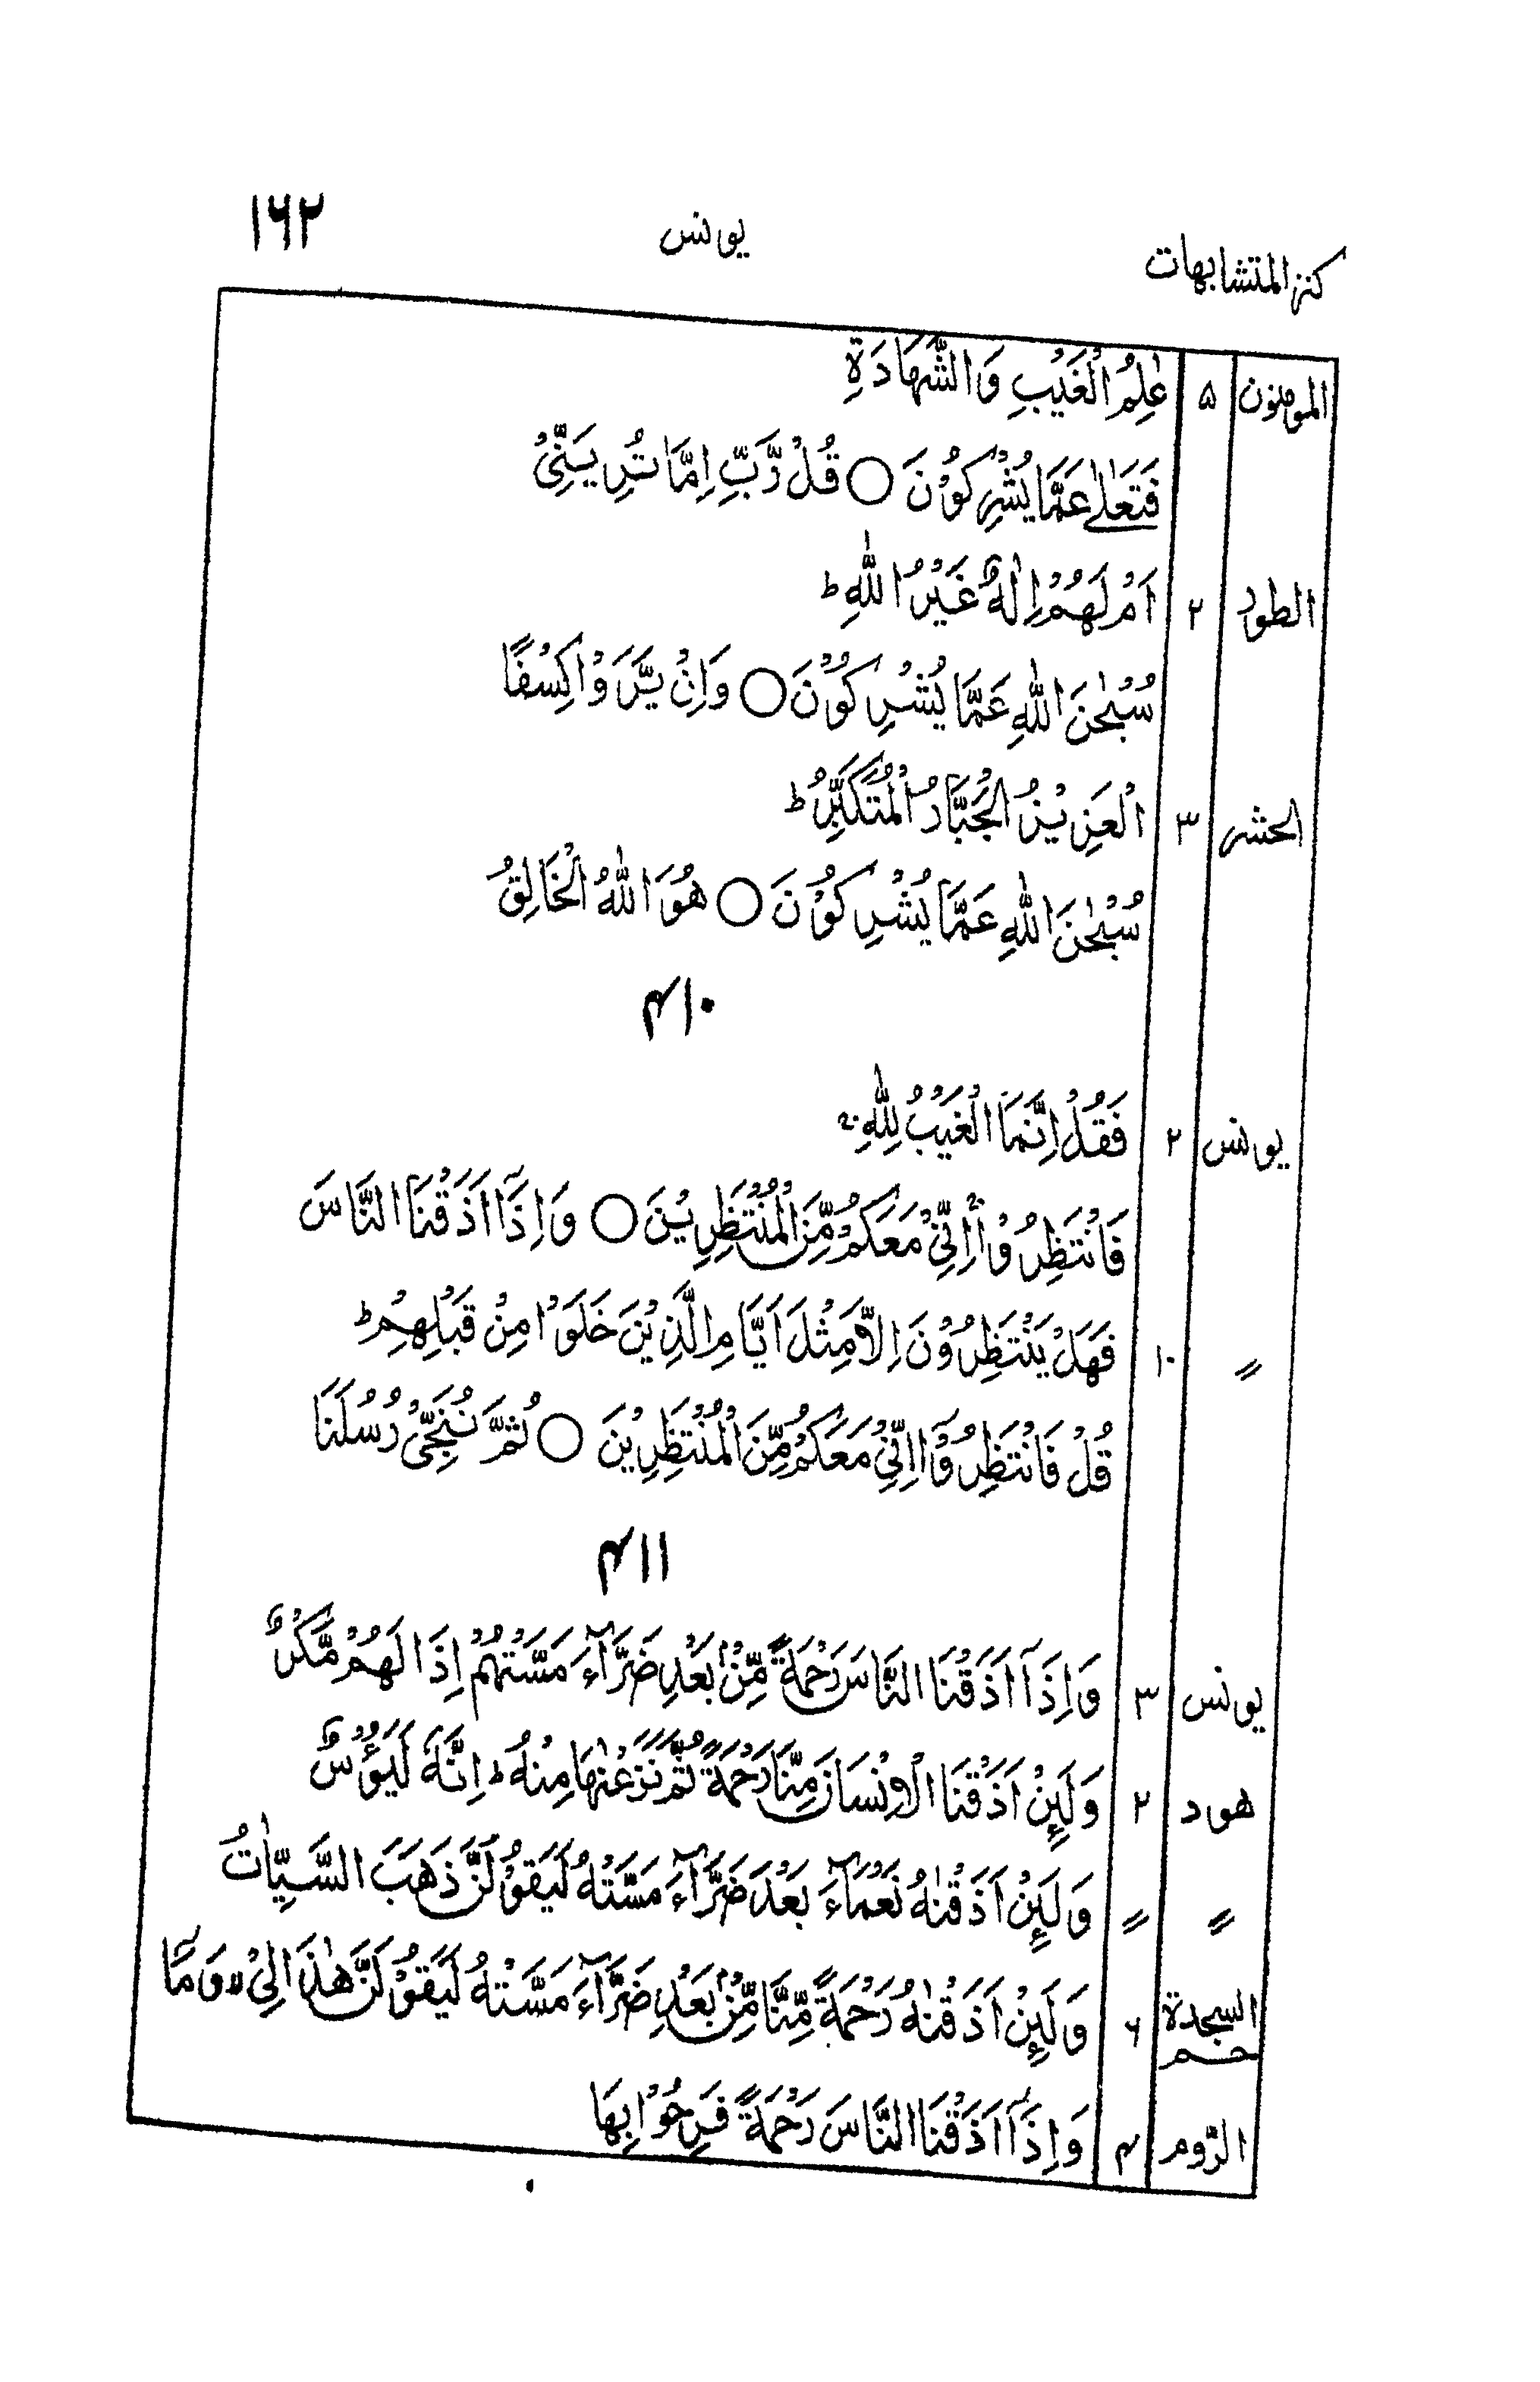 كنز المتشابهات يونس ۱۶۲
المومنون ۵ عٰلِمُ الْغَيْبِ وَالشَّهَادَةِ
فَتَعٰلٰى عَمَّا يُشْرِكُوْنَ ○ قُلْ رَّبِّ اِمَّا تُرِيَنِّىْ
الطور ۲ اَمْ لَهُمْ اِلٰهٌ غَيْرُ اللّٰهِ ؕ
سُبْحٰنَ اللّٰهِ عَمَّا يُشْرِكُوْنَ ○ وَاِنْ يَّرَوْا كِسْفًا
الحشر ۳ الْعَزِيْزُ الْجَبَّارُ الْمُتَكَبِّرُ ؕ
سُبْحٰنَ اللّٰهِ عَمَّا يُشْرِكُوْنَ ○ هُوَ اللّٰهُ الْخَالِقُ
۴۱۰
يونس ۲ فَقُلْ اِنَّمَا الْغَيْبُ لِلّٰهِ
فَانْتَظِرُوْا اِنِّىْ مَعَكُمْ مِّنَ الْمُنْتَظِرِيْنَ ○ وَاِذَآ اَذَقْنَا النَّاسَ
〃 ۱۰ فَهَلْ يَنْتَظِرُوْنَ اِلَّا مِثْلَ اَيَّامِ الَّذِيْنَ خَلَوْا مِنْ قَبْلِهِمْ ؕ
قُلْ فَانْتَظِرُوْٓا اِنِّىْ مَعَكُمْ مِّنَ الْمُنْتَظِرِيْنَ ○ ثُمَّ نُنَجِّىْ رُسُلَنَا
۴۱۱
يونس ۳ وَاِذَآ اَذَقْنَا النَّاسَ رَحْمَةً مِّنْۢ بَعْدِ ضَرَّآءَ مَسَّتْهُمْ اِذَا لَهُمْ مَّكْرٌ
هود ۲ وَلَئِنْ اَذَقْنَا الْاِنْسَانَ مِنَّا رَحْمَةً ثُمَّ نَزَعْنٰهَا مِنْهُ ۚ اِنَّهٗ لَيَؤُسٌ
〃 〃 وَلَئِنْ اَذَقْنٰهُ نَعْمَآءَ بَعْدَ ضَرَّآءَ مَسَّتْهُ لَيَقُوْلَنَّ ذَهَبَ السَّيِّاٰتُ
السجدة حم ۶ وَلَئِنْ اَذَقْنٰهُ رَحْمَةً مِّنَّا مِنْۢ بَعْدِ ضَرَّآءَ مَسَّتْهُ لَيَقُوْلَنَّ هٰذَا لِىْ ۙ وَمَآ
الرّوم ۴ وَاِذَآ اَذَقْنَا النَّاسَ رَحْمَةً فَرِحُوْا بِهَا